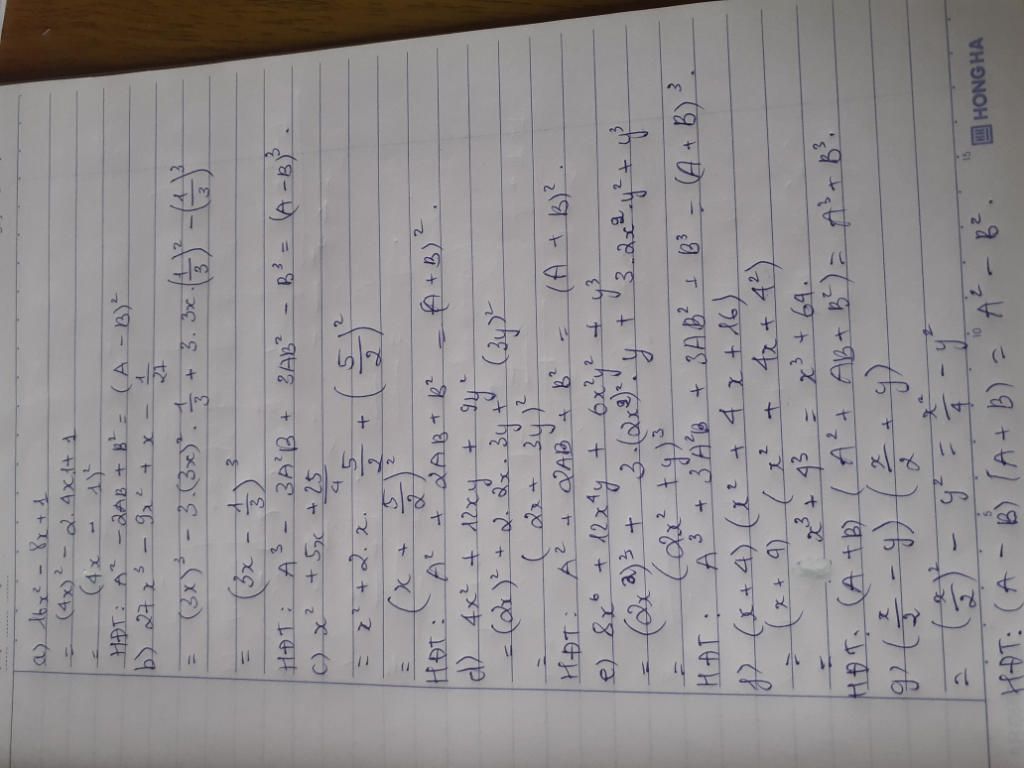 a) 16x² - 8x + 1
= (4x)² - 2.4x1 + 1
= (4x - 1)²
HĐT: A² - 2AB + B² = (A - B)²
b) 27x³ - 9x² + x - 1/27
= (3x)³ - 3.(3x)². 1/3 + 3.3x.(1/3)² - (1/3)³
= (3x - 1/3)³
HĐT: A³ - 3A²B + 3AB² - B³ = (A - B)³.
c) x² + 5x + 25/4
= x² + 2.x. 5/2 + (5/2)²
= (x + 5/2)²
HĐT: A² + 2AB + B² = (A + B)².
d) 4x² + 12xy + 9y²
= (2x)² + 2.2x.3y + (3y)²
= (2x + 3y)²
HĐT: A² + 2AB + B² = (A + B)².
e) 8x⁶ + 12x⁴y + 6x²y² + y³
= (2x²)³ + 3.(2x²)².y + 3.2x².y² + y³
= (2x² + y)³
HĐT: A³ + 3A²B + 3AB² + B³ = (A + B)³.
f) (x + 4)(x² + 4x + 16)
= (x + 4)(x² + 4x + 4²)
= x³ + 4³ = x³ + 64.
HĐT. (A + B)(A² + AB + B²) = A³ + B³.
g) (x/2 - y)(x/2 + y)
= (x/2)² - y² = x²/4 - y²
HĐT: (A - B)(A + B) = A² - B².
5 10 15
HONG HA